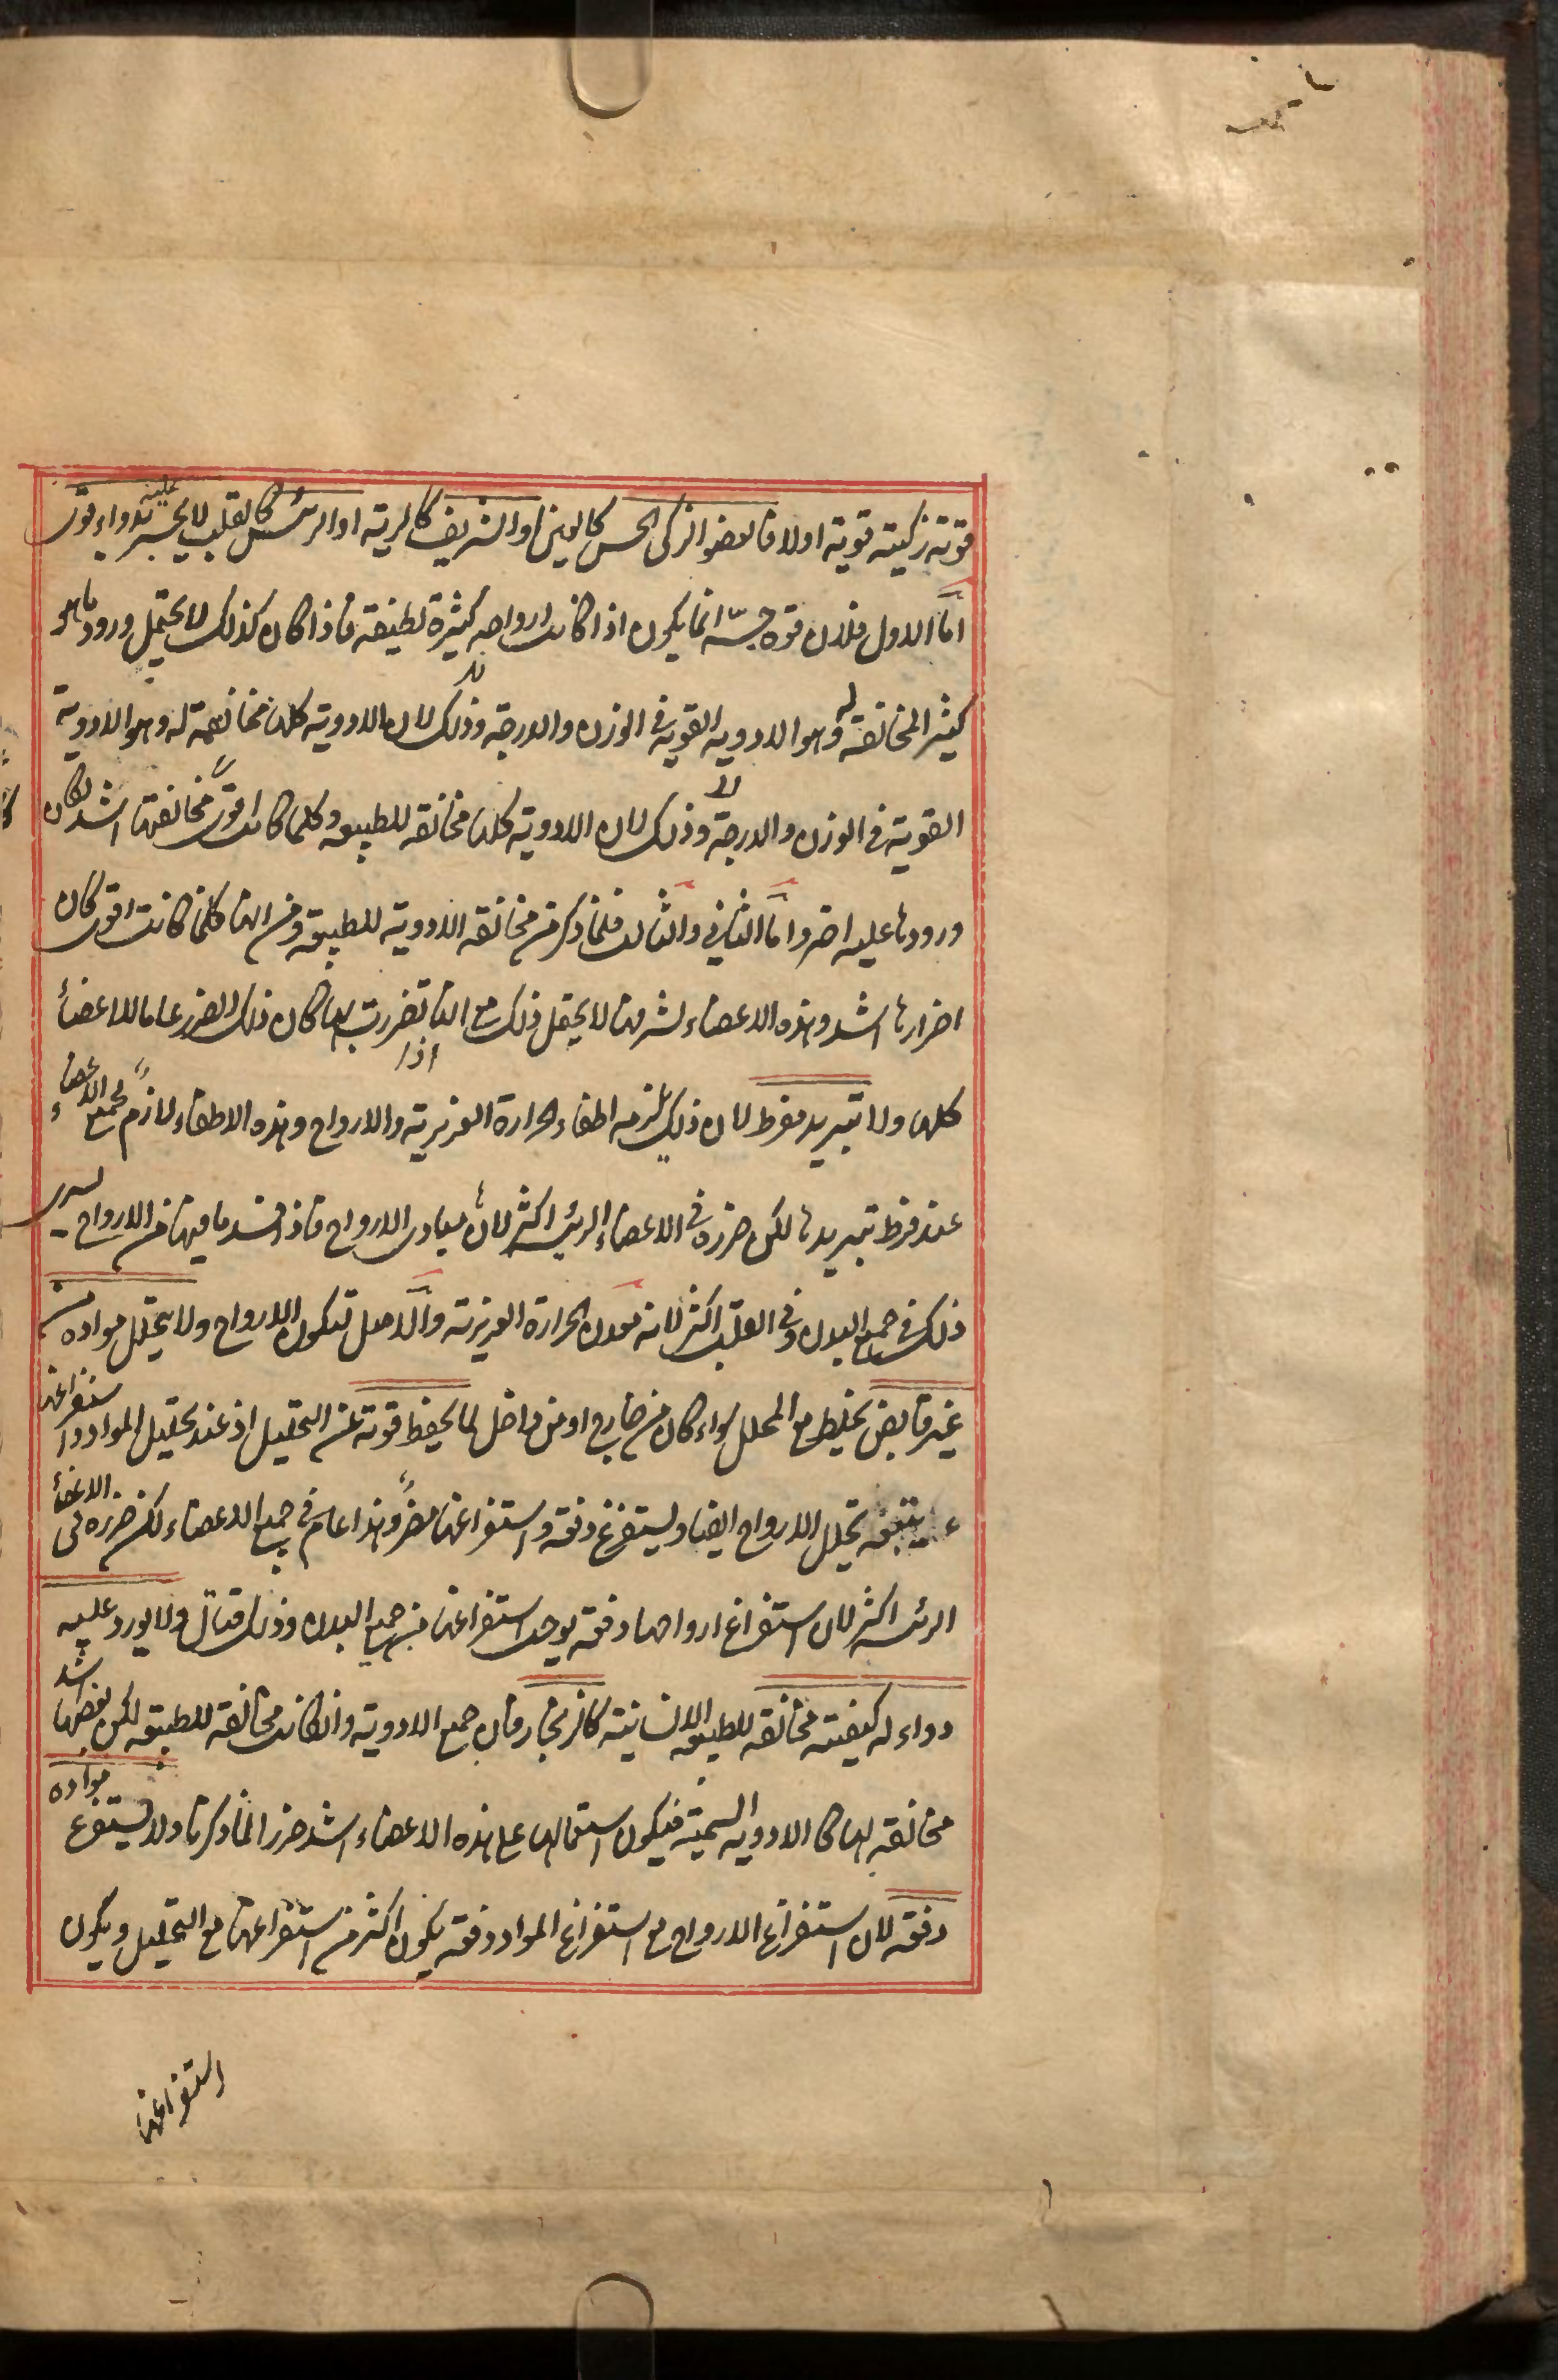 قوته زكيته قوية اولا فالعضو الزكى الحس كالعين او الشريف كالرية او الرئيس كالقلب لا يجبر عليه بدواء قوى
اما الاول فلان قوة حسّه انما يكون اذا كانت ارواحه كثيرة لطيفة فاذا كان كذلك لا يحتمل ورود ما هو
كثير المخالفة له وهو الادوية القوية فى الوزن والدرجة وذلك لان الادوية كلها مخالفة له وهو الادوية
القوية فى الوزن والدرجة وذلك لان الادوية كلها مخالفة للطبيعة وكلما كانت اقوى مخالفتها اشد لكان
ورودها عليه اضر واما الثانى والثالث فلما ذكر من مخالفة الادوية للطبيعة ومن انها كلما كانت اقوى كان
اضرارها اشد وهذه الاعضاء لشرفها لا يحتمل ذلك مع انها اذا تضررت بها كان ذلك الضرر عاما للاعضاء
كلها ولا تبريد مفرط لان ذلك يلزمه اطفاء الحرارة الغريزية والارواح وهذه الاطفاء لازم لجميع الاعضاء
عند فرط تبريدها لكن ضرره فى الاعضاء الرئيسة اكثر لانها مبادى الارواح فاذا فسد ما فيها من الارواح يسرى
ذلك فى جميع البدن وفى القلب اكثر لانه معدن الحرارة الغريزية والاصل لتكون الارواح ولا يحلل مواده من
غير قابض يخلط مع المحلل سواء كان من خارج او من داخل لما يحفظ قوته عن التحليل اذ عند تحليل المواد واستفراغها
يتبعه تحلل الارواح ايضا ويستفرغ دفعة واستفراغها مضر وهذا عام فى جميع الاعضاء لكن ضرره فى الاعضاء
الرئيسة اكثر لان استفراغ ارواحها دفعة يوجب استفراغها من جميع البدن وذلك قتال ولا يورد عليه
دواء له كيفية مخالفة للطبيعة الانسانية كالزنجار فان جميع الادوية وان كانت مخالفة للطبيعة لكن بعضها اشد
مخالفة لها كالادوية السمية فيكون استعمالها على هذه الاعضاء اشد ضررا لما ذكرنا ولا يستفرغ مواده
دفعة لان استفراغ الارواح مع استفراغ المواد دفعة يكون اكثر من استفراغها مع التحليل ويكون
استفراغها